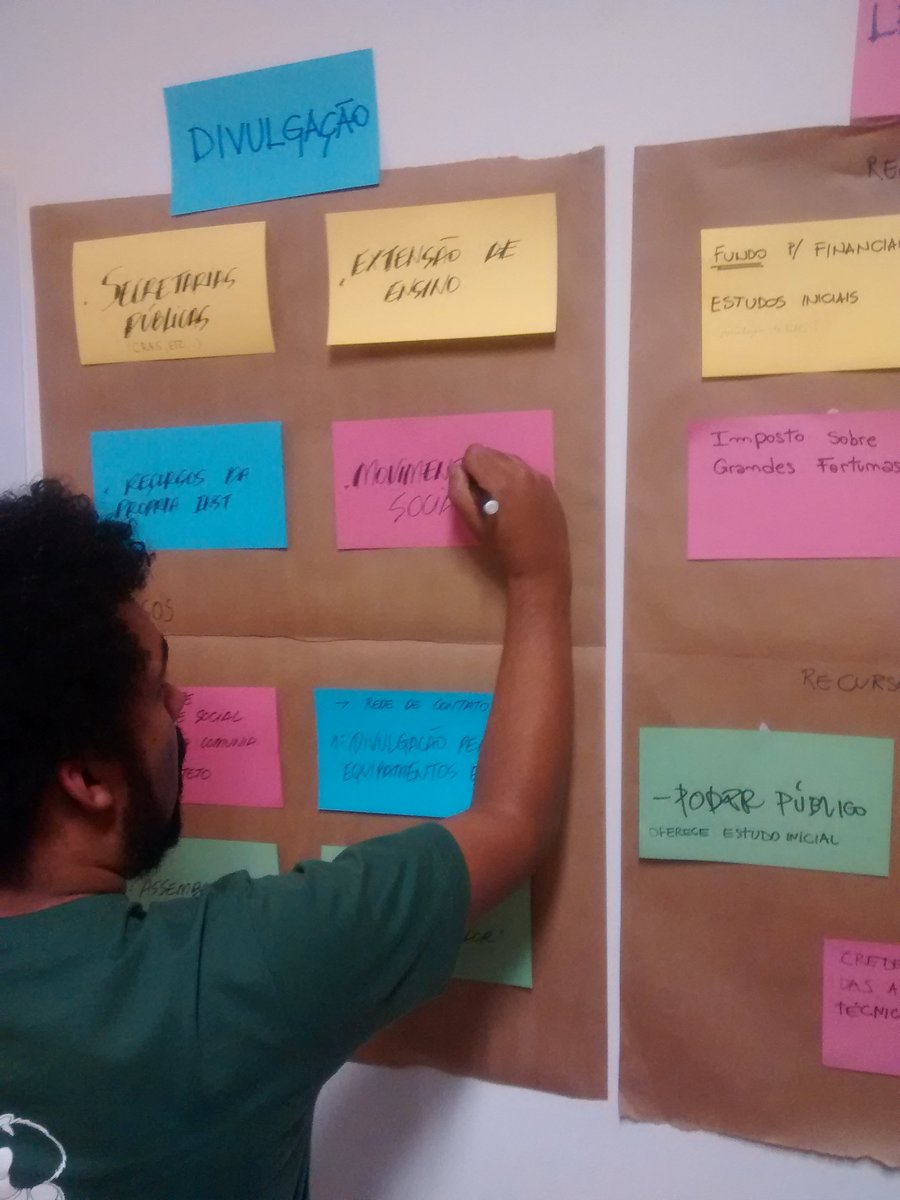 DIVULGAÇÃO
. SECRETARIAS
PÚBLICAS
(CRAS, ETC..)
. EXTENSÃO DE
ENSINO
. RECURSOS DA
PRÓPRIA INST
. MOVIMEN
SOCIA
SOCIAL
COMUNIDA
TETO
→ REDE DE CONTATO
DIVULGAÇÃO PE
EQUIPAMENTOS E
ASSEMB
DOR"
L
RE
FUNDO P/ FINANCIA
ESTUDOS INICIAIS
Imposto Sobre
Grandes Fortunas
RECURSO
- PODER PÚBLICO
OFERECE ESTUDO INICIAL
CREDE
DAS A
TÉCNIC